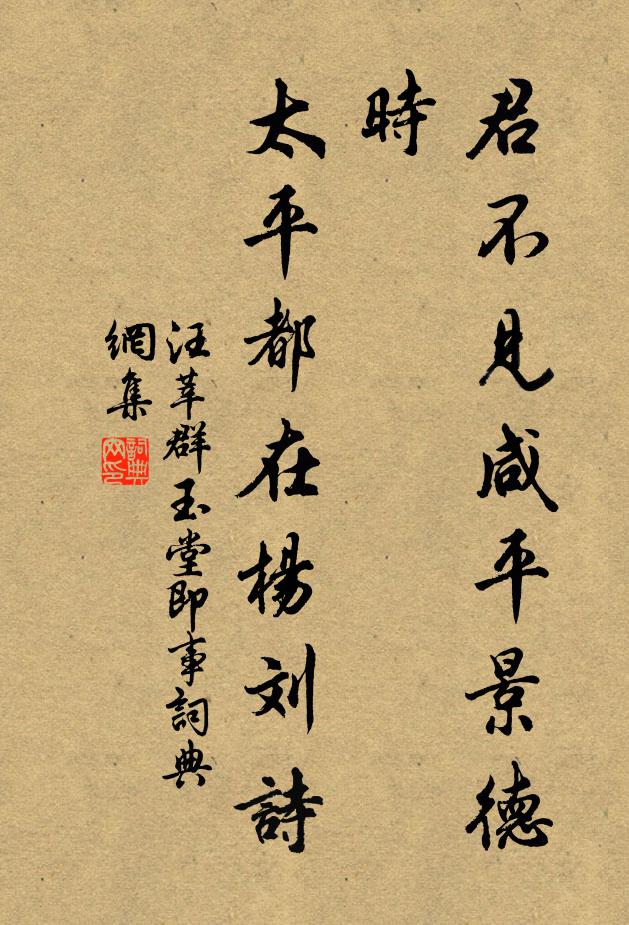 君不見咸平景德
時
太平都在楊刘詩
汪莘群玉堂即事詞典
網集
詞典网印